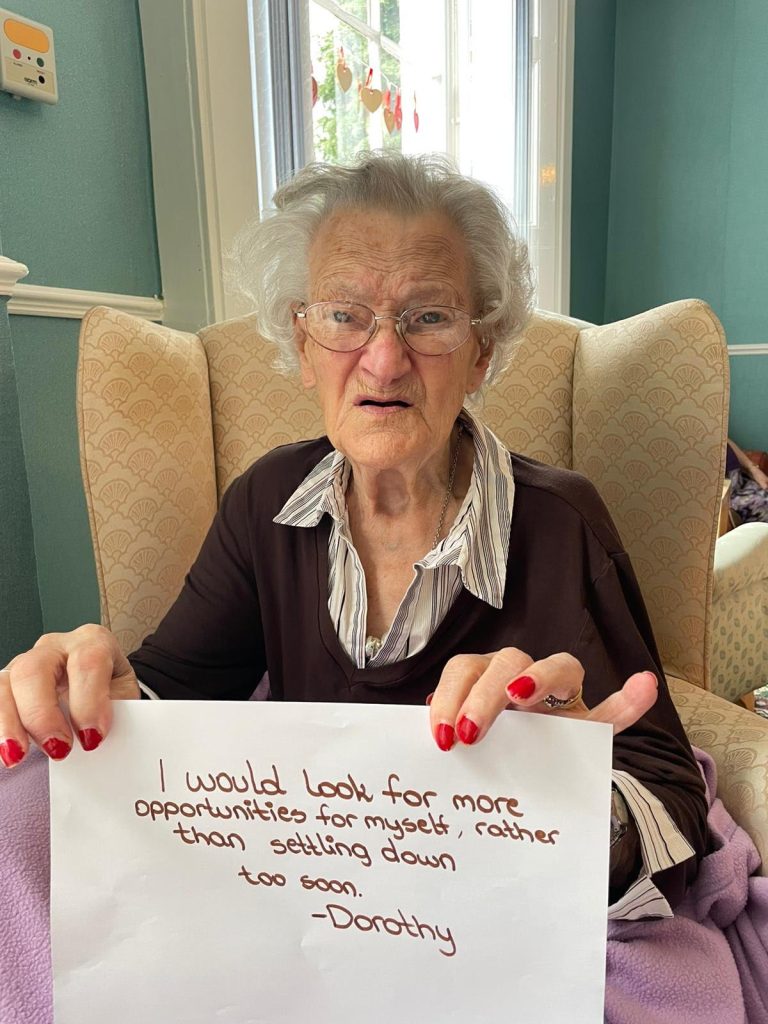 I would look for more
opportunities for myself, rather
than settling down
too soon.
-Dorothy